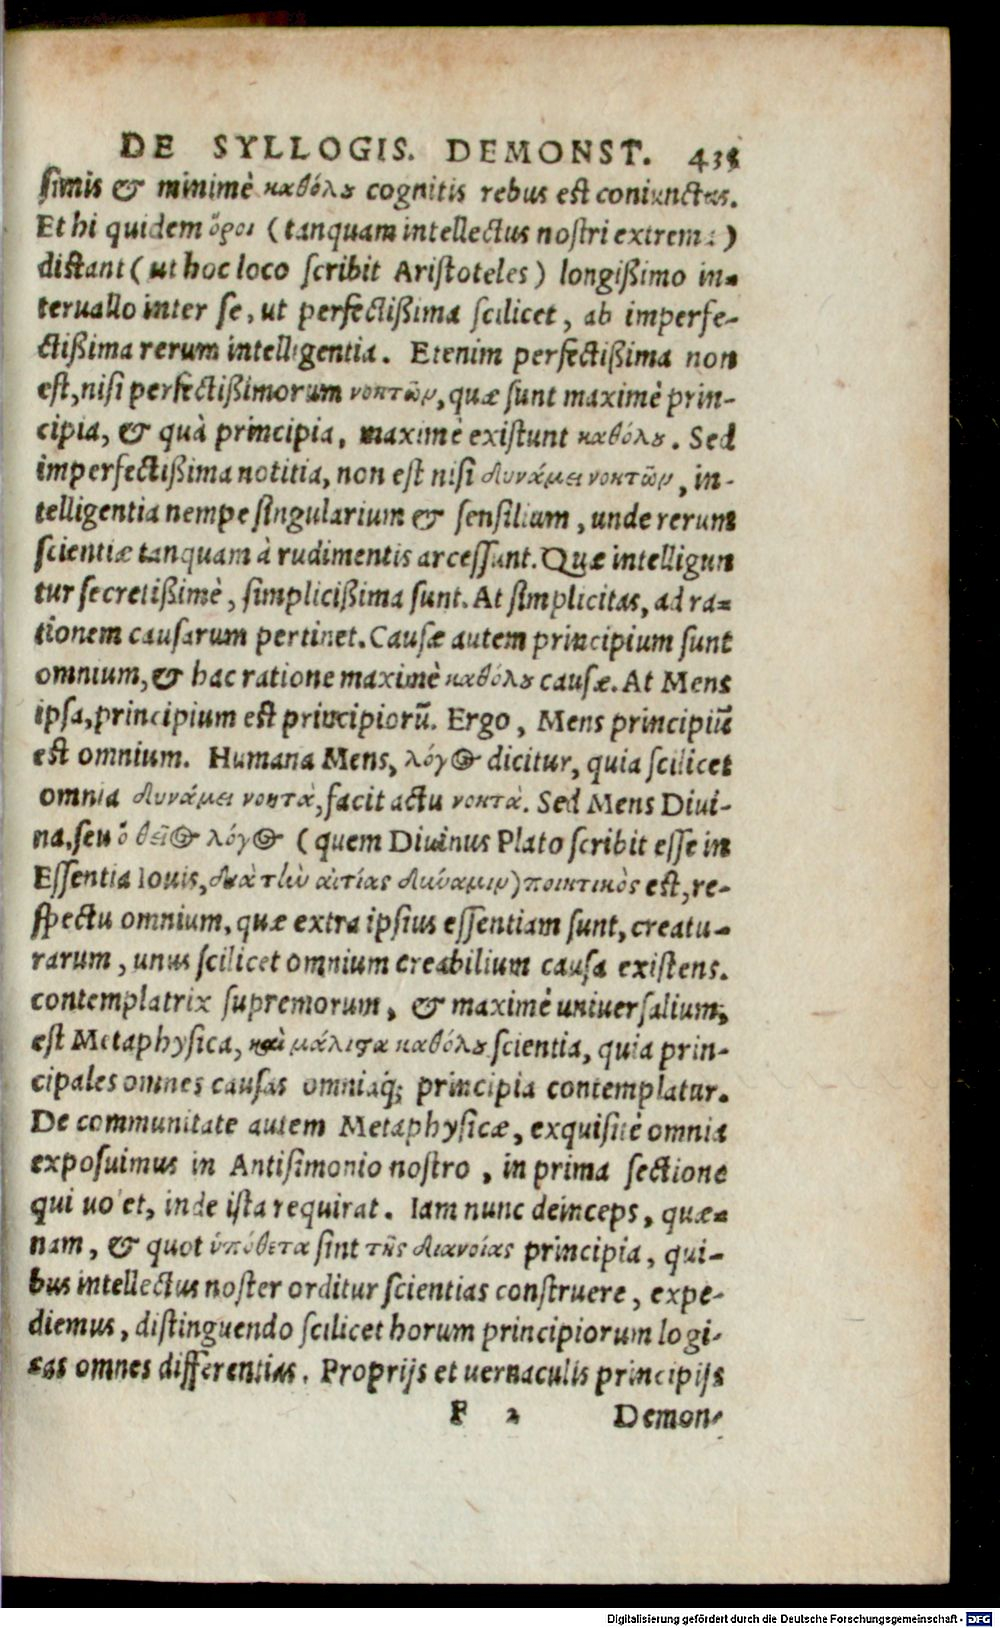 DE SYLLOGIS. DEMONST. 435
simis & minimè καθόλου cognitis rebus est coniunctus.
Et hi quidem ὅροι (tanquam intellectus nostri extrema)
distant (ut hoc loco scribit Aristoteles) longißimo in-
teruallo inter se, ut perfectißima scilicet, ab imperfe-
ctißima rerum intelligentia. Etenim perfectißima non
est, nisi perfectißimorum νοητῶν, quæ sunt maximè prin-
cipia, & quà principia, maximè existunt καθόλου. Sed
imperfectißima notitia, non est nisi δυνάμει νοητῶν, in-
telligentia nempe singularium & sensilium, unde rerum
scientiæ tanquam à rudimentis arcessunt. Quæ intelligun
tur secretißimè, simplicißima sunt. At simplicitas, ad ra-
tionem causarum pertinet. Causæ autem principium sunt
omnium, & hac ratione maximè καθόλου causæ. At Mens
ipsa, principium est principiorũ. Ergo, Mens principiũ
est omnium. Humana Mens, λόγος dicitur, quia scilicet
omnia δυνάμει νοητὰ, facit actu νοητὰ. Sed Mens Diui-
na, seu ὁ θεῖος λόγος (quem Diuinus Plato scribit esse in
Essentia Iouis, διὰ τὴν αἰτίας δύναμιν) ποιητικὸς est, re-
spectu omnium, quæ extra ipsius essentiam sunt, creatu-
rarum, unus scilicet omnium creabilium causa existens.
contemplatrix supremorum, & maximè uniuersalium,
est Metaphysica, καὶ μάλιστα καθόλου scientia, quia prin-
cipales omnes causas omniaq; principia contemplatur.
De communitate autem Metaphysicæ, exquisitè omnia
exposuimus in Antisimonio nostro, in prima sectione
qui uolet, inde ista requirat. Iam nunc deinceps, quæ-
nam, & quot ὑπόθετα sint τῆς διανοίας principia, qui-
bus intellectus noster orditur scientias construere, expe-
diemus, distinguendo scilicet horum principiorum logi-
cas omnes differentias. Proprijs et uernaculis principijs
F 2 Demon-
Digitalisierung gefördert durch die Deutsche Forschungsgemeinschaft - DFG